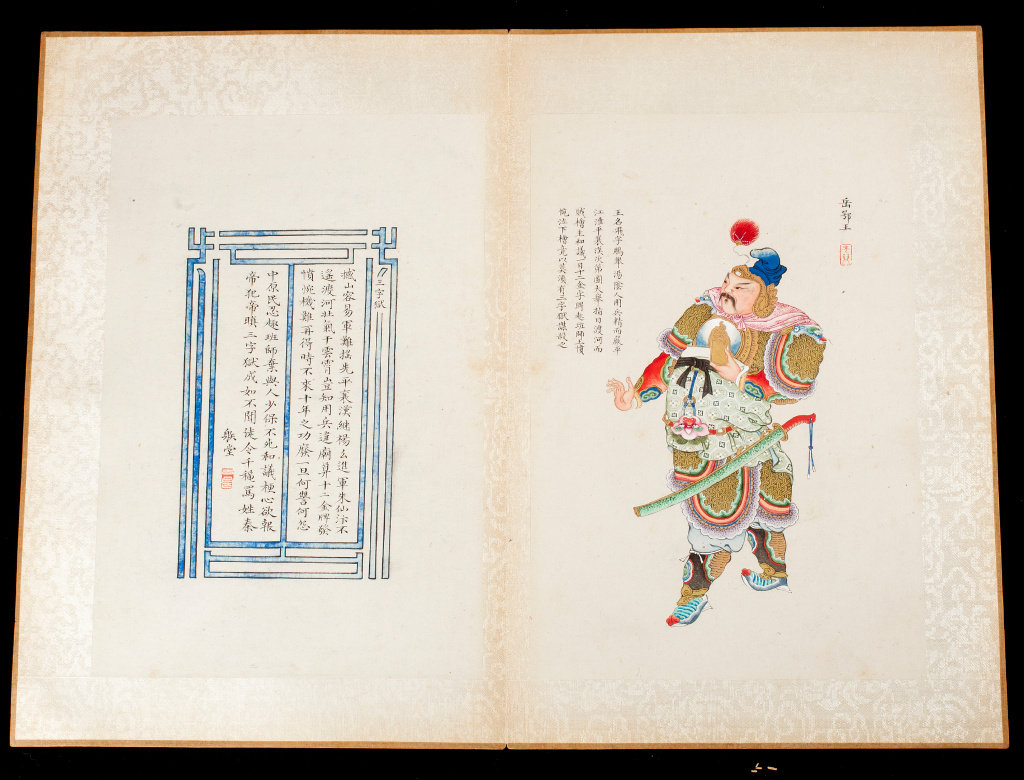 岳鄂王
王名飛字鵬舉湯陰人用兵精而嚴平
江淮平襄漢次第圖大舉指日渡河而
賊檜主和議一日十二金字牌趣班師王憤
惋泣下檜竟以莫須有三字獄謀殺之
三字獄
撼山容易軍難搖先平襄漢繼楊幺進軍朱仙汴不
遙渡河壯氣干雲霄豈知用兵違廟算十二金牌發
憤惋機難再得時不來十年之功廢一旦何讐何怨
中原民忍趣班師棄與人少保不死和議梗心欲報
帝犯帝瞋三字獄成如不聞徒令千穐罵姓秦
堂